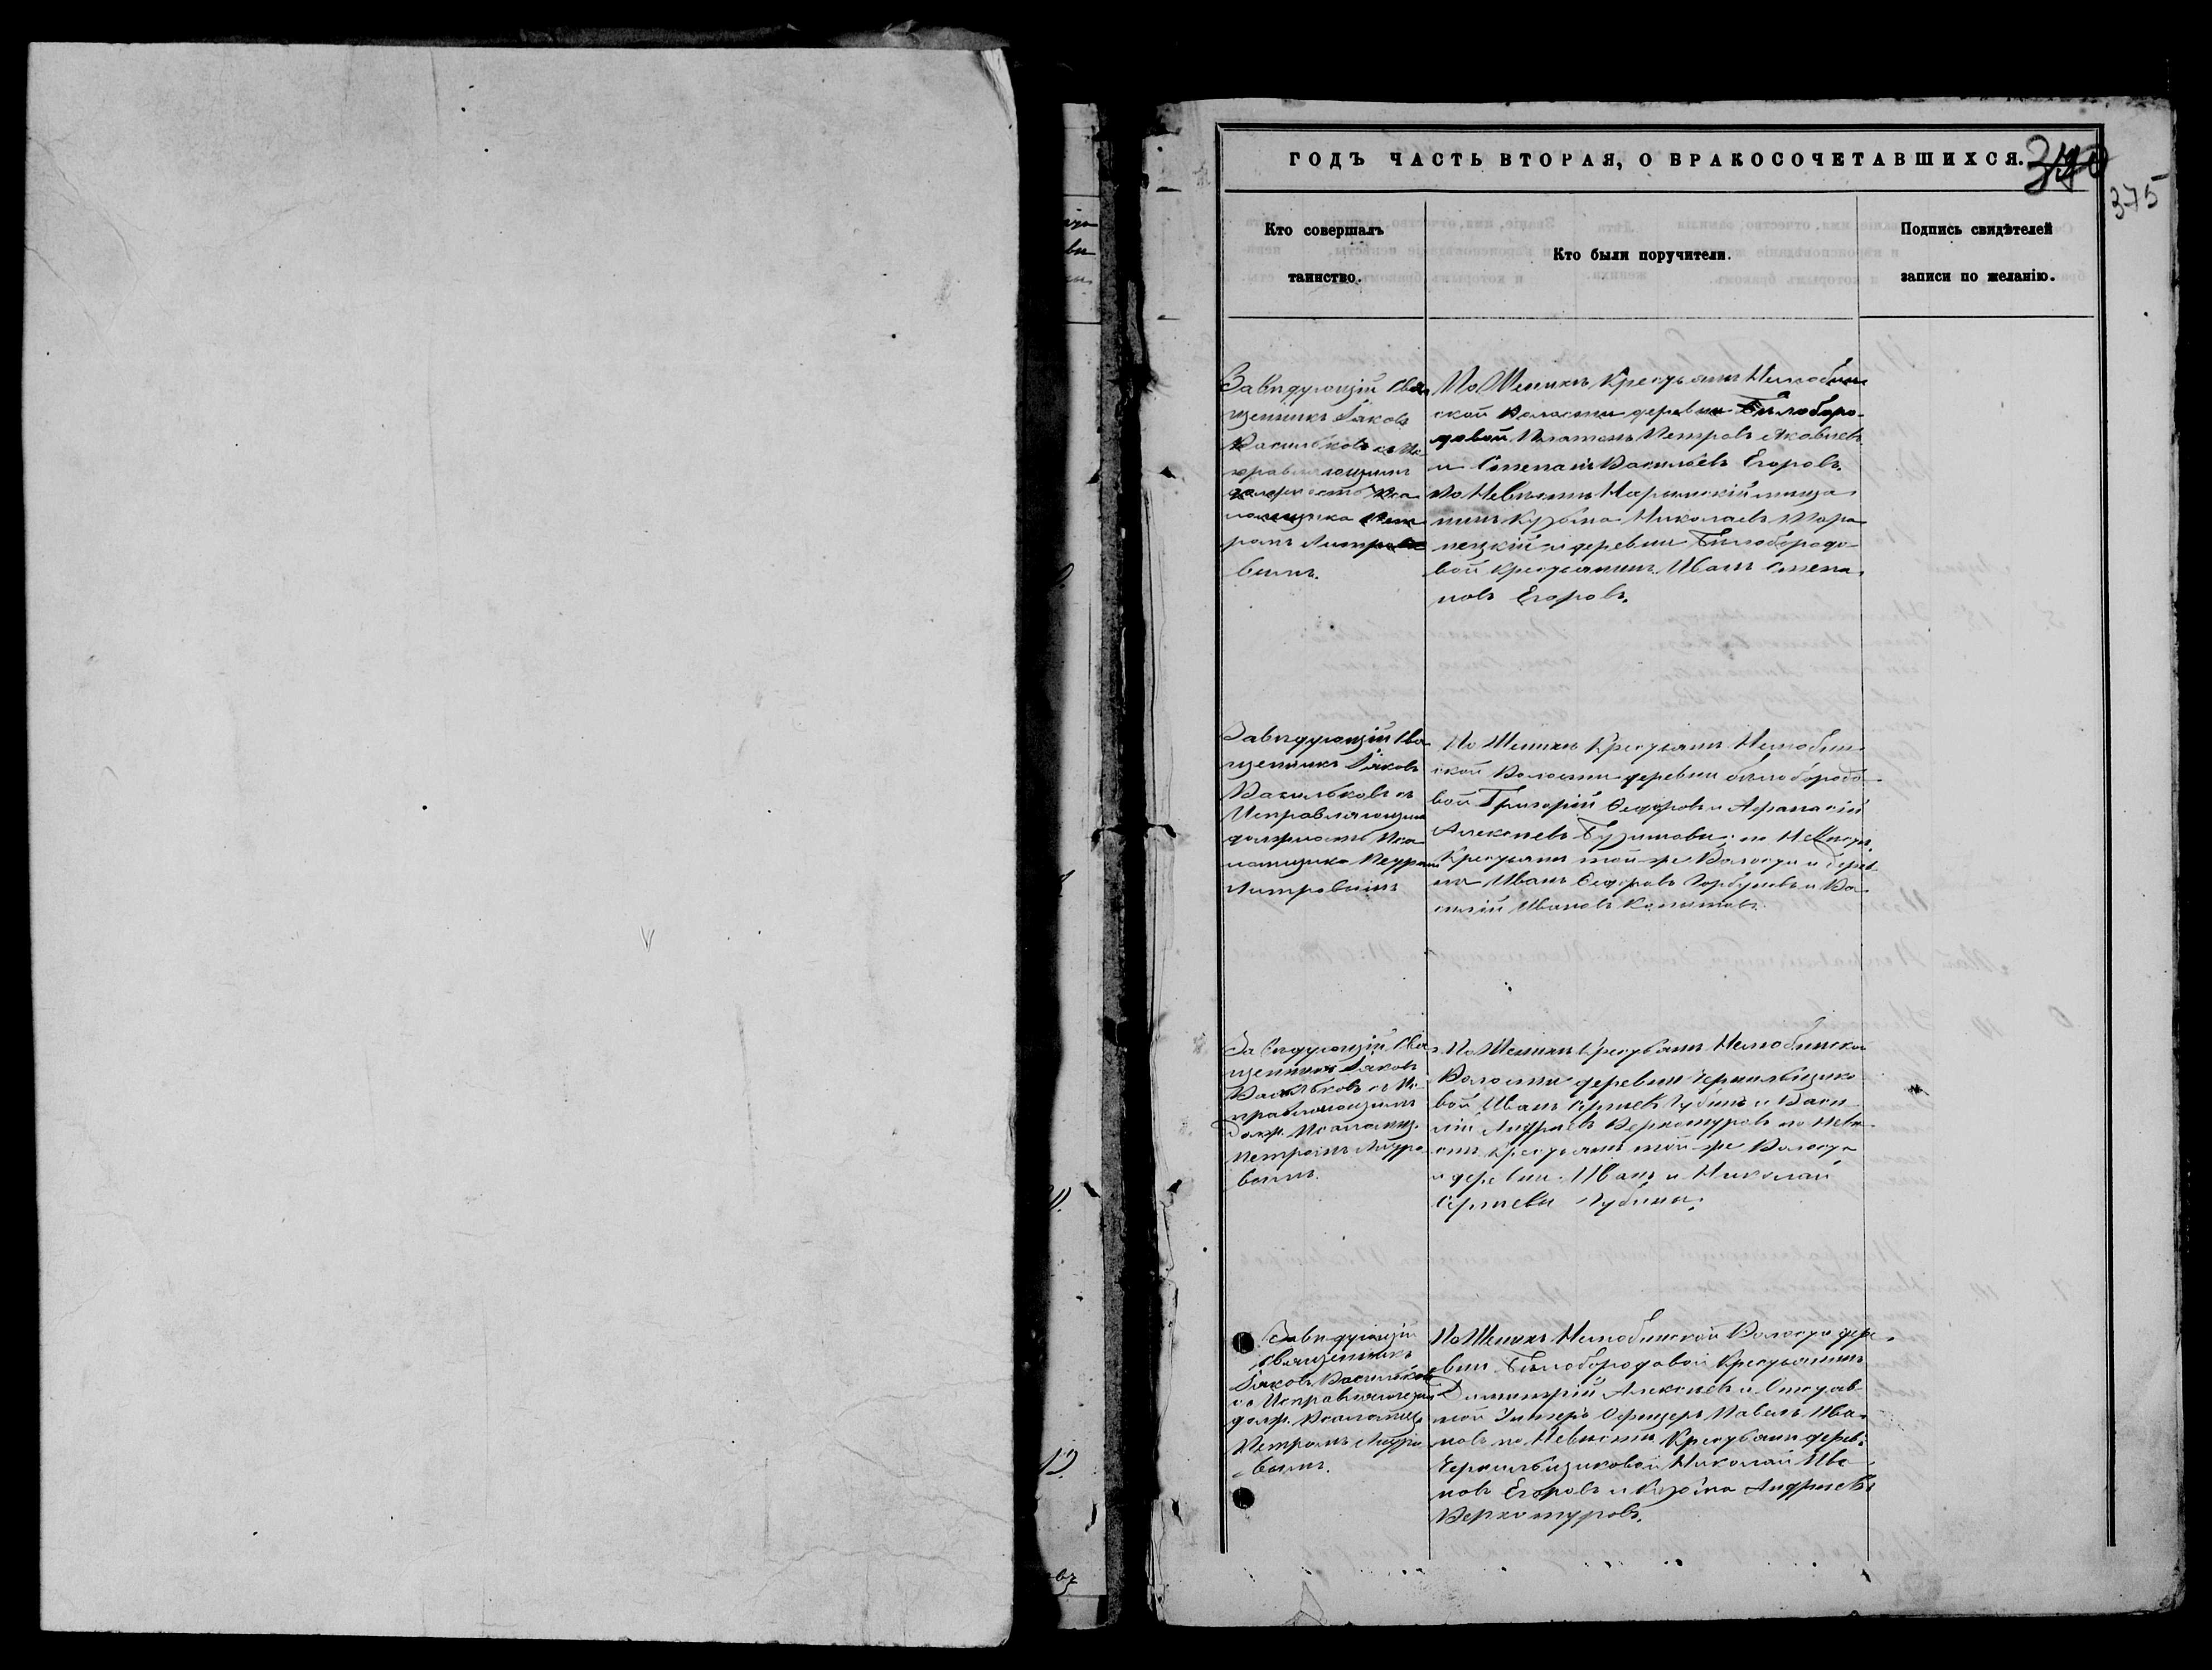 ГОДЪ ЧАСТЬ ВТОРАЯ, О БРАКОСОЧЕТАВШИХСЯ.
375
Кто совершалъ
таинство.
Кто были поручители.
Подпись свидѣтелей
записи по желанію.
Завѣдующій Свя-
щенникъ Іаковъ
Васильковъ съ Ис-
правляющимъ
должность Пса-
ломщика Пет-
ромъ
вымъ.
По Женихѣ Крестьяне Нелюбин-
ской Волости деревни Бѣлоборо-
довой Платонъ Петровъ Яковлевъ
и Степанъ Васильевъ Егоровъ,
по Невѣстѣ Нарымскій мѣща-
нинъ Кузьма Николаевъ
и деревни Бѣлобородо-
вой крестьянинъ Иванъ Степа-
новъ Егоровъ.
Завѣдующій Свя-
щенникъ Іаковъ
Васильковъ съ
Исправляющимъ
должность Пса-
ломщика Петромъ
По Женихѣ Крестьяне Нелюбин-
ской Волости деревни Бѣлобородо-
вой Григорій Ѳедоровъ и Афанасій
Алексѣевъ по Невѣстѣ
Крестьяне той-же Волости и дерев-
ни Иванъ Ѳедоровъ Горбуновъ и Ва-
силій Ивановъ
Завѣдующій Свя-
щенникъ Іаковъ
Васильковъ съ Ис-
правляющимъ
долж. Псаломщ.
Петромъ
вымъ.
По Женихѣ Крестьяне Нелюбинской
Волости деревни Чернильщико-
вой Иванъ Сергѣевъ Губинъ и Васи-
лій Андреевъ Верхотуровъ по Невѣ-
стѣ Крестьяне той-же Волости
и деревни Иванъ и Николай
Сергѣевы Губины.
Завѣдующій
Священникъ
Іаковъ Васильковъ
съ Исправляющимъ
долж. Псаломщ.
Петромъ
вымъ.
По Женихѣ Нелюбинской Волости дере-
вни Бѣлобородовой Крестьянинъ
Димитрій Алексѣевъ и Отстав-
ной Унтеръ Офицеръ Павелъ Ива-
новъ по Невѣстѣ Крестьяне дерев.
Николай Ива-
новъ Егоровъ и Кузьма Андреевъ
Верхотуровъ.